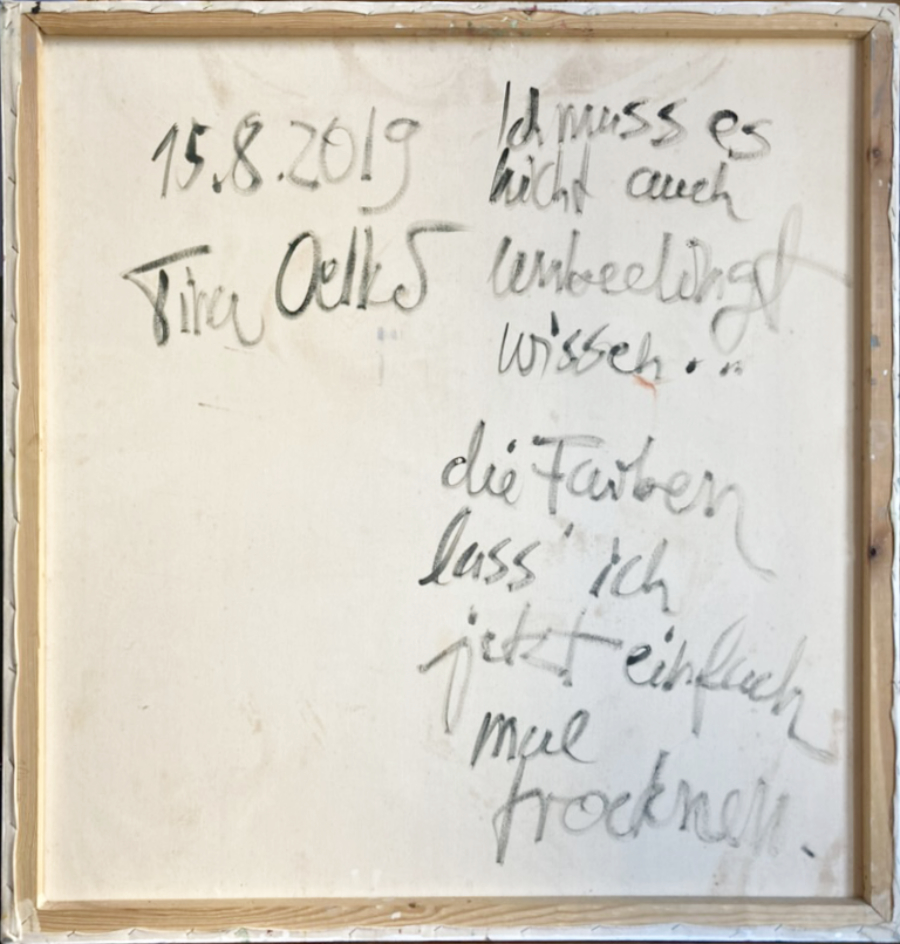 15.8.2019
Tina Oelks
Ich muss es
nicht auch
unbedingt
wissen...
die Farben
lass' ich
jetzt einfach
mal
trocknen.